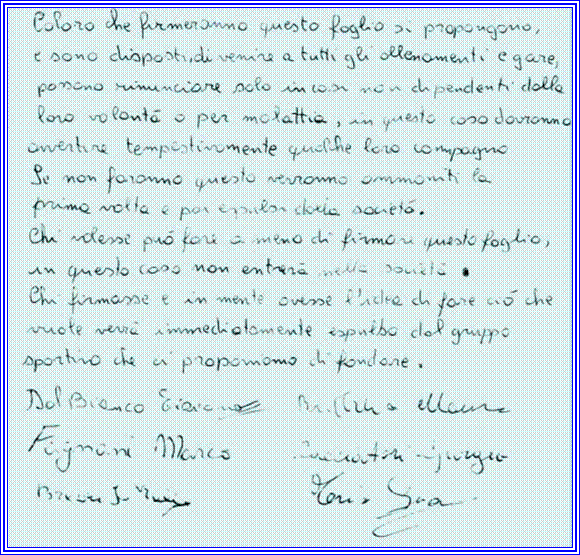 Coloro che firmeranno questo foglio si propongono,
e sono disposti, di venire a tutti gli allenamenti e gare,
possono rinunciare solo in casi non dipendenti dalla
loro volontá o per malattia, in questo caso dovranno
avvertire tempestivamente qualche loro compagno
Se non faranno questo verranno ammoniti la
prima volta e poi espulsi dalla societá.
Chi volesse puó fare a meno di firmare questo foglio,
in questo caso non entrerá nella societá.
Chi firmasse e in mente avesse l'idea di fare ció che
vuole verrá immediatamente espulso dal gruppo
sportivo che ci proponiamo di fondare.
Dal Bianco
Fignani Marco